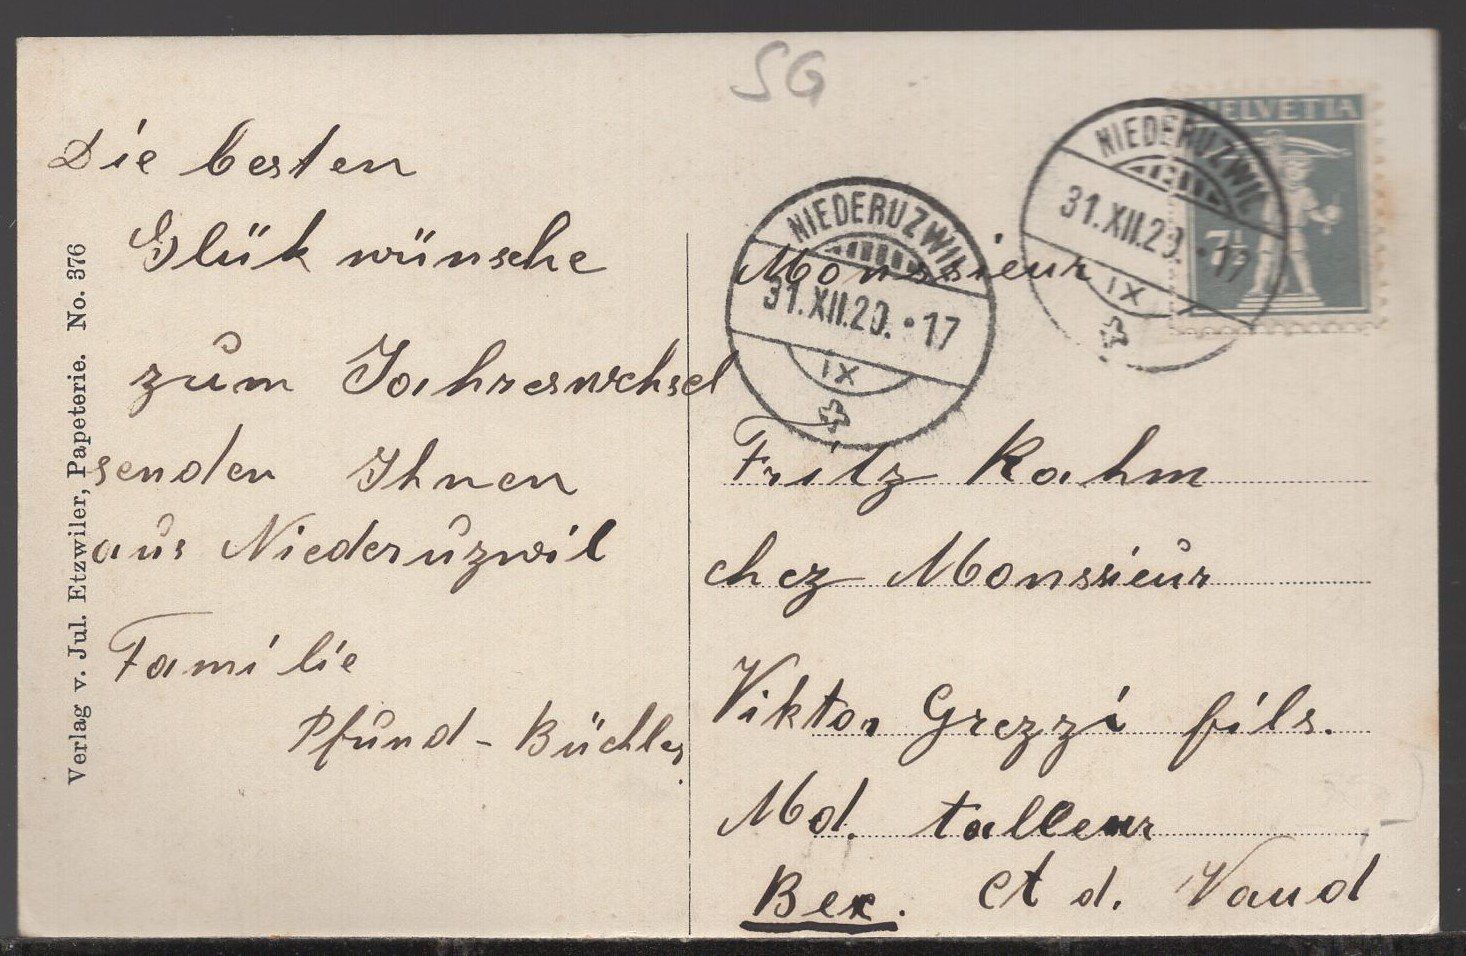 SG
Die besten
Glük wünsche
zum Jahreswchsel
senden Ihnen
aus Niederuzwil
Familie
Pfund - Büchler.
Verlag v. Jul. Etzwiler, Papeterie. No. 376
NIEDERUZWIL
31.XII.20. • 17
IX
NIEDERUZWIL
31.XII.20. • 17
IX
HELVETIA
7½
Monssieur
Fritz Rahm
chez Monssieur
Viktor Grezzi fils.
Md. talleur
Bex. Ct d. Vaud